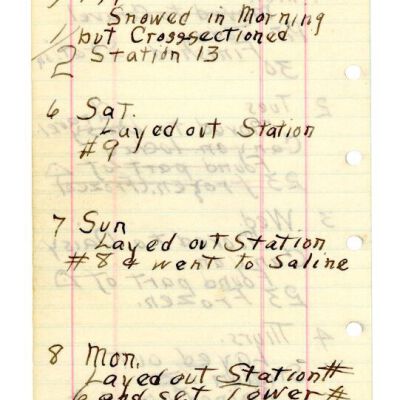 Snowed in Morning
1/2 but Crosssectioned
Station 13
6 Sat.
Layed out Station
#9
7 Sun
Layed out Station
#8 & went to Saline
8 Mon.
Layed out Station #
6 and set Tower #